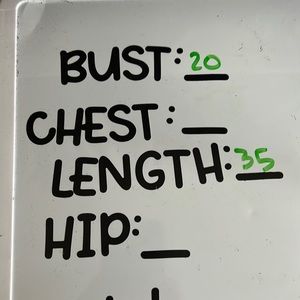 BUST: 20
CHEST: __
LENGTH: 35
HIP: __